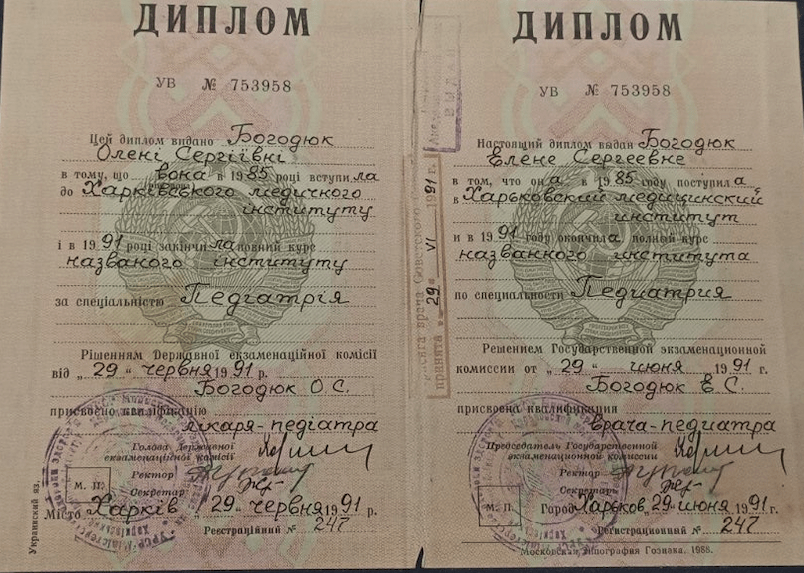 ДИПЛОМ
УВ № 753958
Цей диплом видано Богодюк
Олені Сергіївні
в тому, що вона в 1985 році вступила
до Харківського медичного
інституту
і в 1991 році закінчила повний курс
названого інституту
за спеціальністю Педіатрія
Рішенням Державної екзаменаційної комісії
від „29“ червня 1991 р.
Богодюк О.С.
присвоєно кваліфікацію
лікаря-педіатра
Голова Державної
екзаменаційної комісії
Ректор
Секретар
М. П.
Місто Харків „29“ червня 1991 р.
Реєстраційний № 247
Украинский яз.
врача Советского
принята „29“ VI 1991 г.
ДИПЛОМ
УВ № 753958
Настоящий диплом выдан Богодюк
Елене Сергеевне
в том, что она в 1985 году поступила
в Харьковский медицинский
институт
и в 1991 году окончила полный курс
названного института
по специальности Педиатрия
Решением Государственной экзаменационной
комиссии от „29“ июня 1991 г.
Богодюк Е.С.
присвоена квалификация
врача-педиатра
Председатель Государственной
экзаменационной комиссии
Ректор
Секретарь
М. П.
Город Харьков, 29 июня 1991 г.
Регистрационный № 247
Московская типография Гознака. 1988.